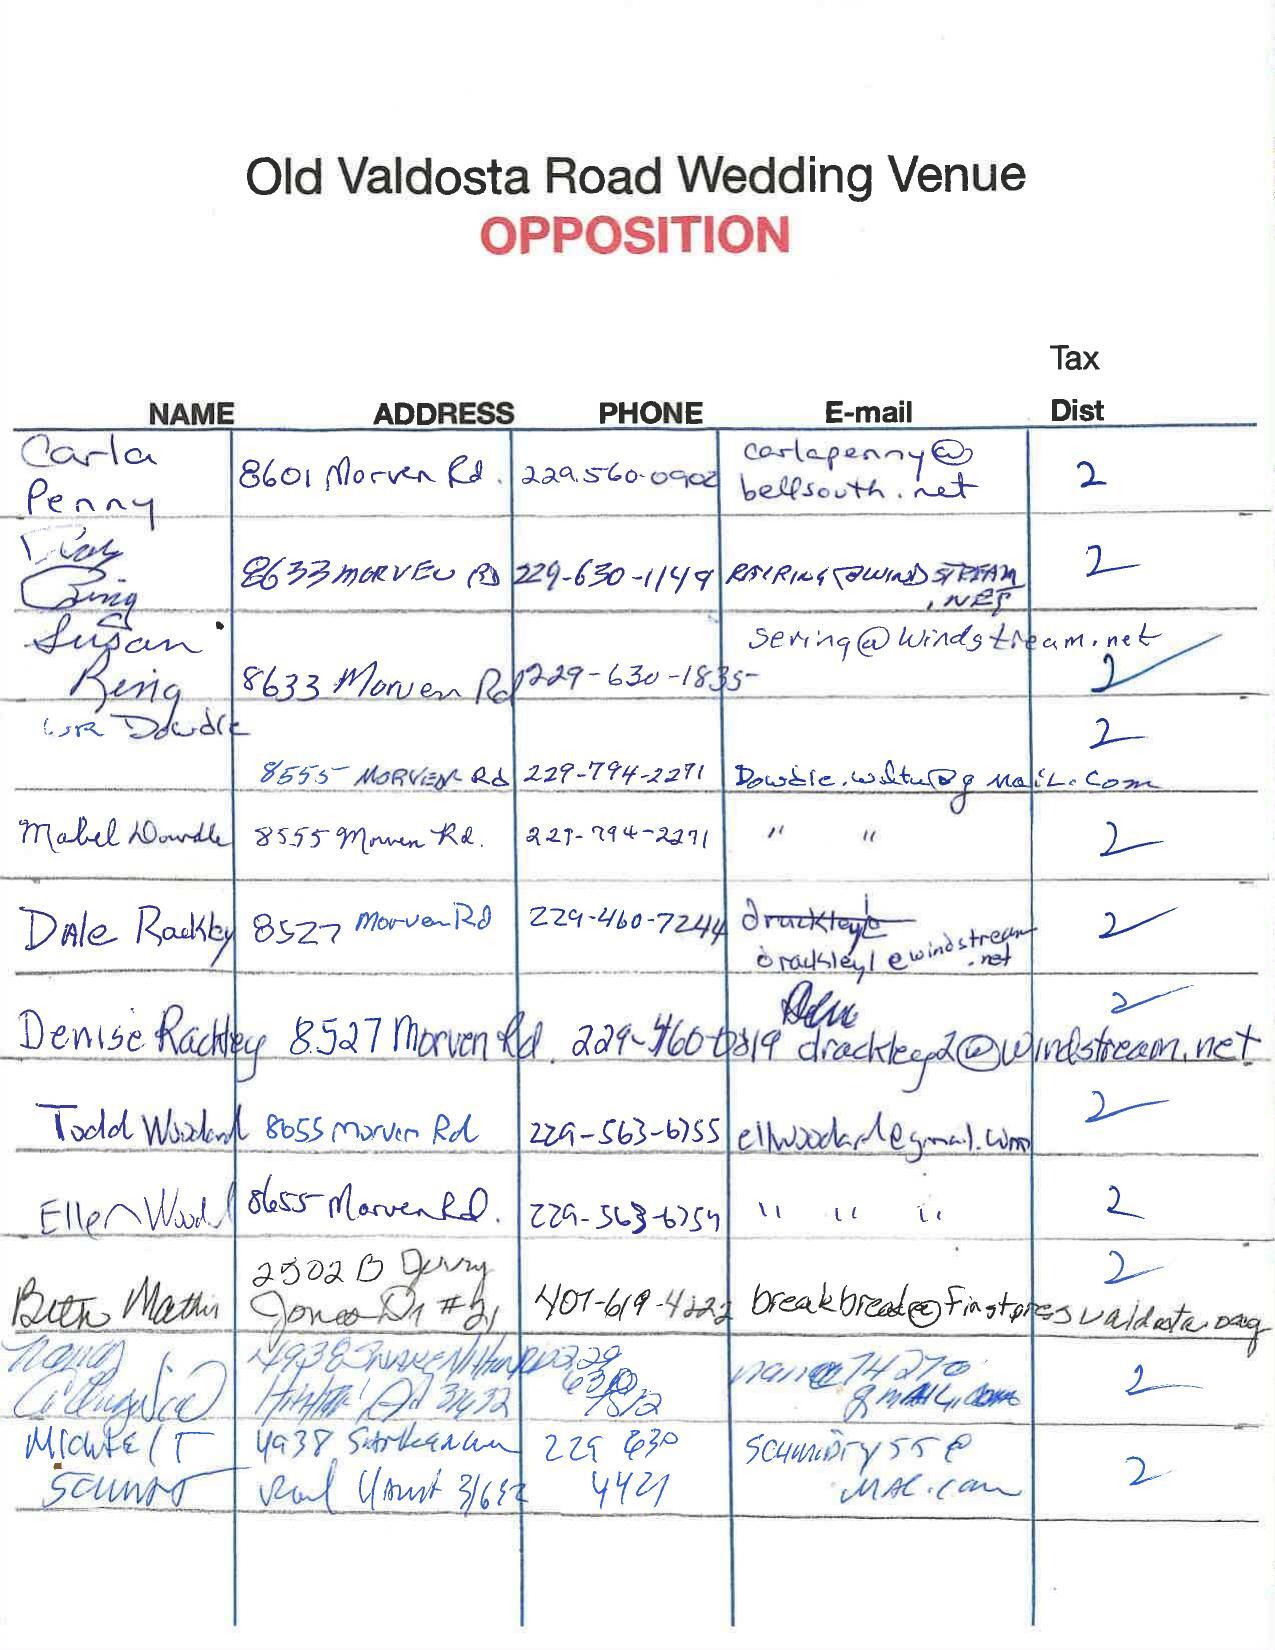 Old Valdosta Road Wedding Venue
OPPOSITION
Tax
NAME ADDRESS PHONE E-mail Dist
Carla Penny 8601 Morven Rd. 229.560-0902 carlapenny@bellsouth.net 2
8633 MORVEN RD 229-630-1149 @WINDSTREAM.NET 2
Susan Ring 8633 Morven Rd 229-630-1835 sering@windstream.net 2
Dowdle 8555 MORVEN Rd 229-794-2271 2
Mabel Dowdle 8555 Morven Rd. 229-794-2271 " " 2
Dale Rackley 8527 Morven Rd 229-460-7244 drackley1@windstream.net 2
Denise Rackley 8527 Morven Rd. 229-460-0819 drackley2@windstream.net 2
Todd Woodard 8655 Morven Rd 229-563-6755 ellwoodard@gmail.com 2
Ellen Wood 8655 Morven Rd. 229-563-6754 " " " 2
Beth Mathis 2302 B Jerry Jones Dr #21 407-619-4222 2
Nancy 4938 229 630 2
4938 229 630 4421 MAC.com 2